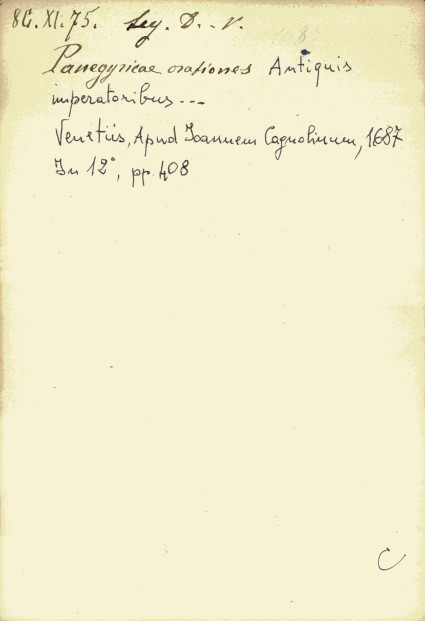 8G. XI. 75. Leg. D. - V.
Panegyricae orationes Antiquis
imperatoribus ---
Venetiis, Apud Joannem Cagnolinum, 1687
In 12°, pp. 408
C